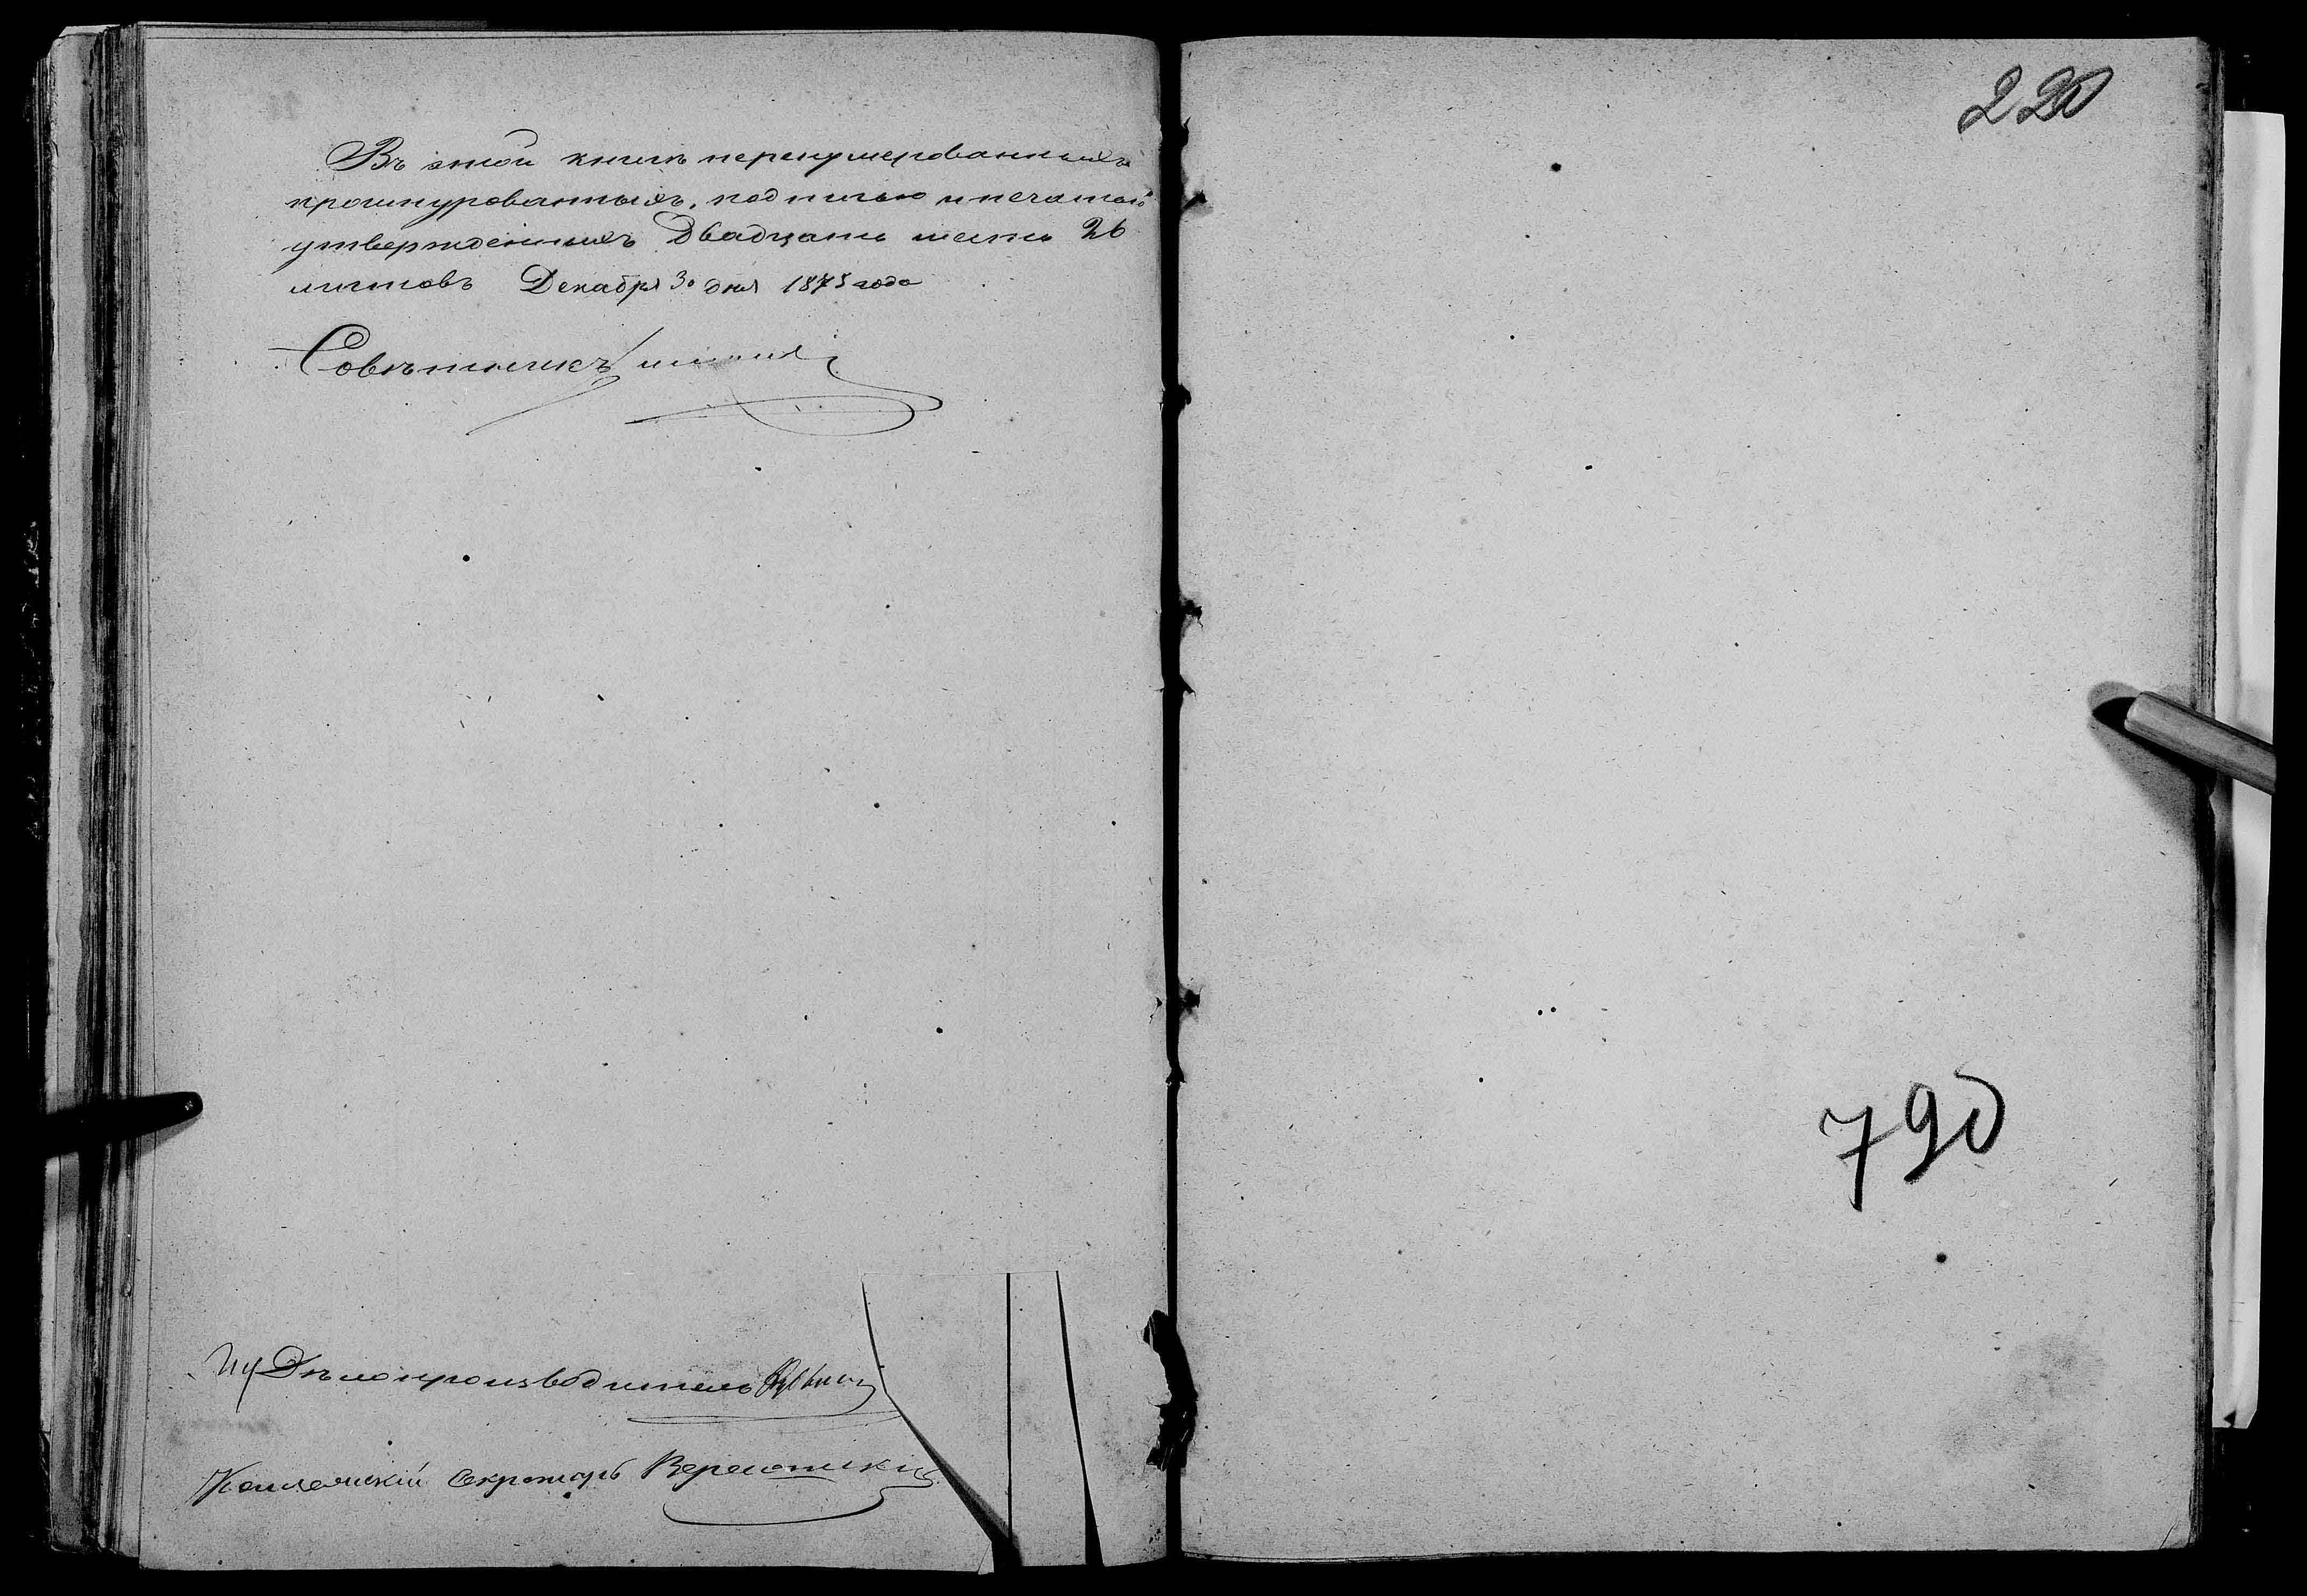 Въ этой книгѣ перенумерованныхъ
прошнурованныхъ, подписью и печатью
утвержденныхъ Двадцать шесть 26
листовъ Декабря 30 дня 1875 года
Совѣтникъ
Иу Дѣлопроизводитель
Коллежскій Секретарь
220
790